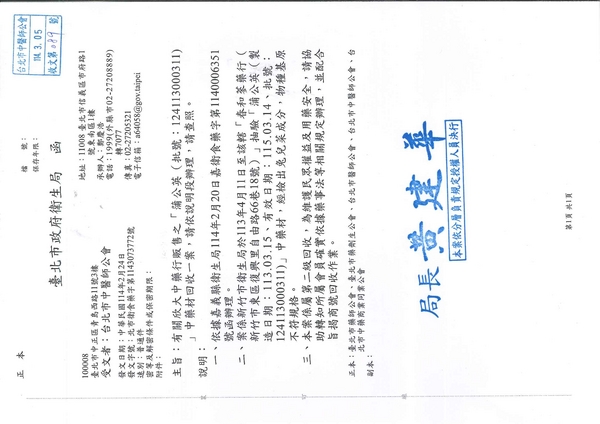 正 本
檔 號：
保存年限：
臺北市政府衛生局 函
地址：11008臺北市信義區市府路1號東南區1樓
承辦人：鄭慶浩
電話：1999(外縣市02-27208889)轉7077
傳真：02-27205321
電子信箱：a64058@gov.taipei
100008
臺北市中正區青島西路11號3樓
受文者：台北市中醫師公會
發文日期：中華民國114年2月24日
發文字號：北市衛食藥字第1143073772號
速別：普通件
密等及解密條件或保密期限：
附件：
主旨：有關欣大中藥行販售之「蒲公英（批號：124113000311)
」中藥材回收一案，請依說明段辦理，請查照。
說明：
一、依據嘉義縣衛生局114年2月20日嘉衛食藥字第1140006351
號函辦理。
二、案係新竹市衛生局於113年4月11日至該轄「春和蔘藥行(
新竹市東區復興里自由路66巷18號)」抽驗「蒲公英(製
造日期：113.03.15、有效日期：115.03.14、批號：
1241130003 11)」中藥材，經檢出兔兒菜成分，物種基原
不符規格。
三、本案係屬第二級回收，為維護民眾權益及用藥安全，請協
助轉知所屬會員確實依據藥事法等相關規定辦理，並配合
旨揭商號回收作業。
正本：臺北市藥師公會、臺北市藥劑生公會、台北市醫師公會、台北市中醫師公會、台
北市中藥商業同業公會
副本：
局長 黃建華
本案依分層負責規定授權人員決行
第1頁 共1頁
台北市中醫師公會
114.3.05
收文第089號